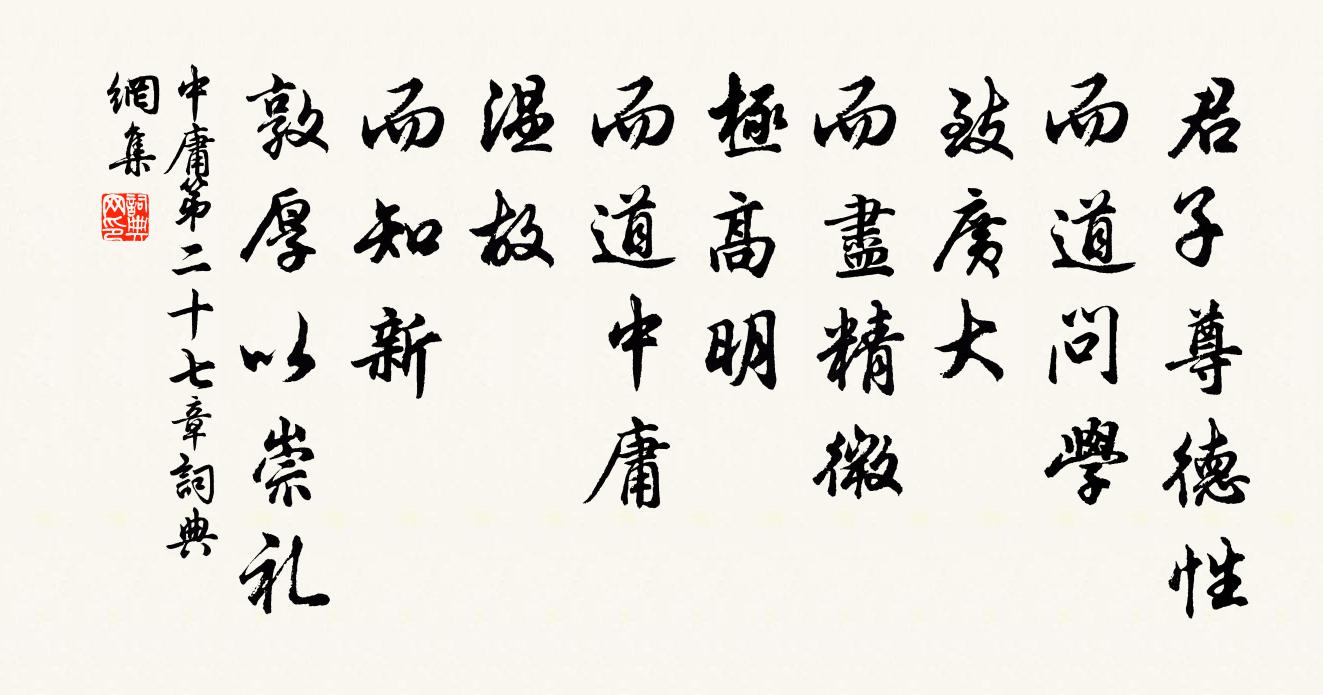 君子尊德性
而道問學
致廣大
而盡精微
極高明
而道中庸
温故
而知新
敦厚以崇礼
中庸第二十七章詞典
網集
詞典
网印